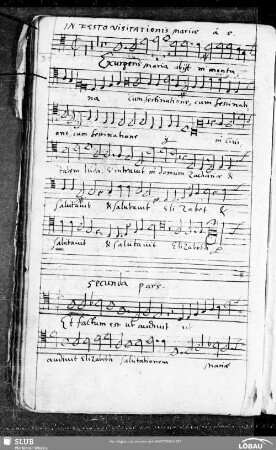 IN FESTO VISITATIONIS Mariæ à 5.
Exurgens Maria abijt in monta
na cum festinatione, cum festinati
one, cum festinatione ij in civi,
tatem Iuda. & intravit in domum Zachariæ &
salutavit & salutavit Elizabet &
salutavit & salutavit Elizabeth
Secunda pars.
Et factum est ut audivit ut
audivit Elizabeth salutationem Mariæ
SLUB
Wir führen Wissen.
LÖBAU